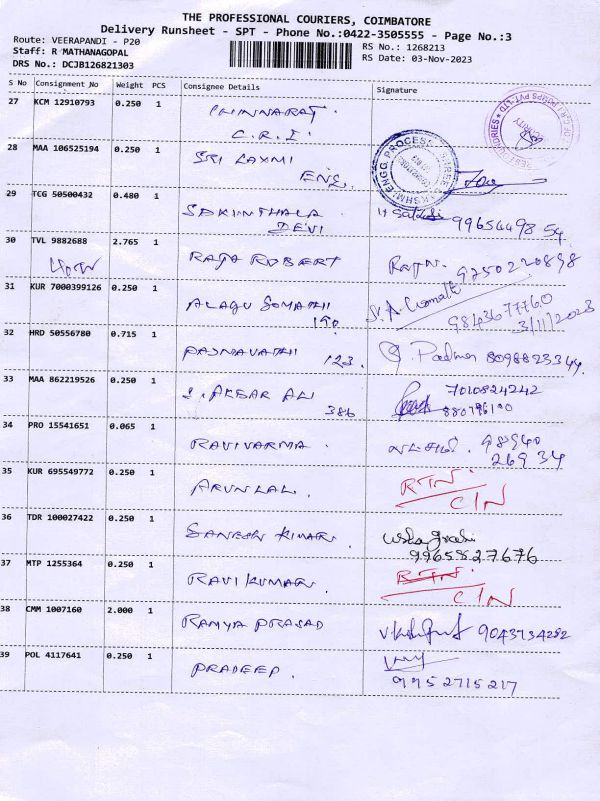 THE PROFESSIONAL COURIERS, COIMBATORE
Delivery Runsheet - SPT - Phone No.:0422-3505555 - Page No.:3
Route: VEERAPANDI - P20
Staff: R MATHANAGOPAL
DRS No.: DCJB126821303
RS No.: 1268213
RS Date: 03-Nov-2023
S No Consignment No Weight PCS Consignee Details Signature
27 KCM 12910793 0.250 1 CHINNARAJ
C.R.I.
28 MAA 106525194 0.250 1 SRI LAXMI
ENG.
29 TCG 50500432 0.480 1 SAKINTHALA
DEVI
30 TVL 9882688 2.765 1 RAJA ROBERT
31 KUR 7000399126 0.250 1 ALAGU SOMATHI
190
9843677760
3/11/2023
32 HRD 50556780 0.715 1 PADMAVATHI 123. Padma 8098823344
33 MAA 862219526 0.250 1 AKBAR ALI
386
7010824242
34 PRO 15541651 0.065 1 RAVIVARMA. 98940
269 34
35 KUR 695549772 0.250 1 ARUNLAL. RTN.
C/N
36 TDR 100027422 0.250 1 GANESH KUMAR.
9965827676
37 MTP 1255364 0.250 1 RAVI KUMAR. RTN.
C/N
38 CMM 1007160 2.000 1 RAMYA PRASAD 9043734282
39 POL 4117641 0.250 1 PRADEEP.
9952715217